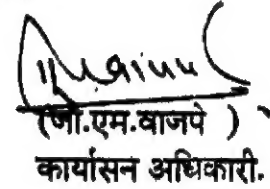 (जी.एम.वाजपे )
कार्यासन अधिकारी.